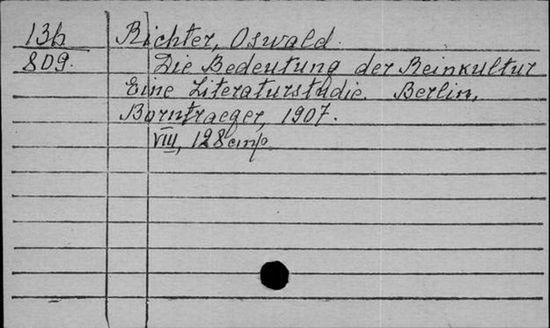 13b Richter, Oswald.
809. Die Bedeutung der Reinkultur
Eine Literaturstudie. Berlin,
Borntraeger, 1907.
VIII, 128 стр